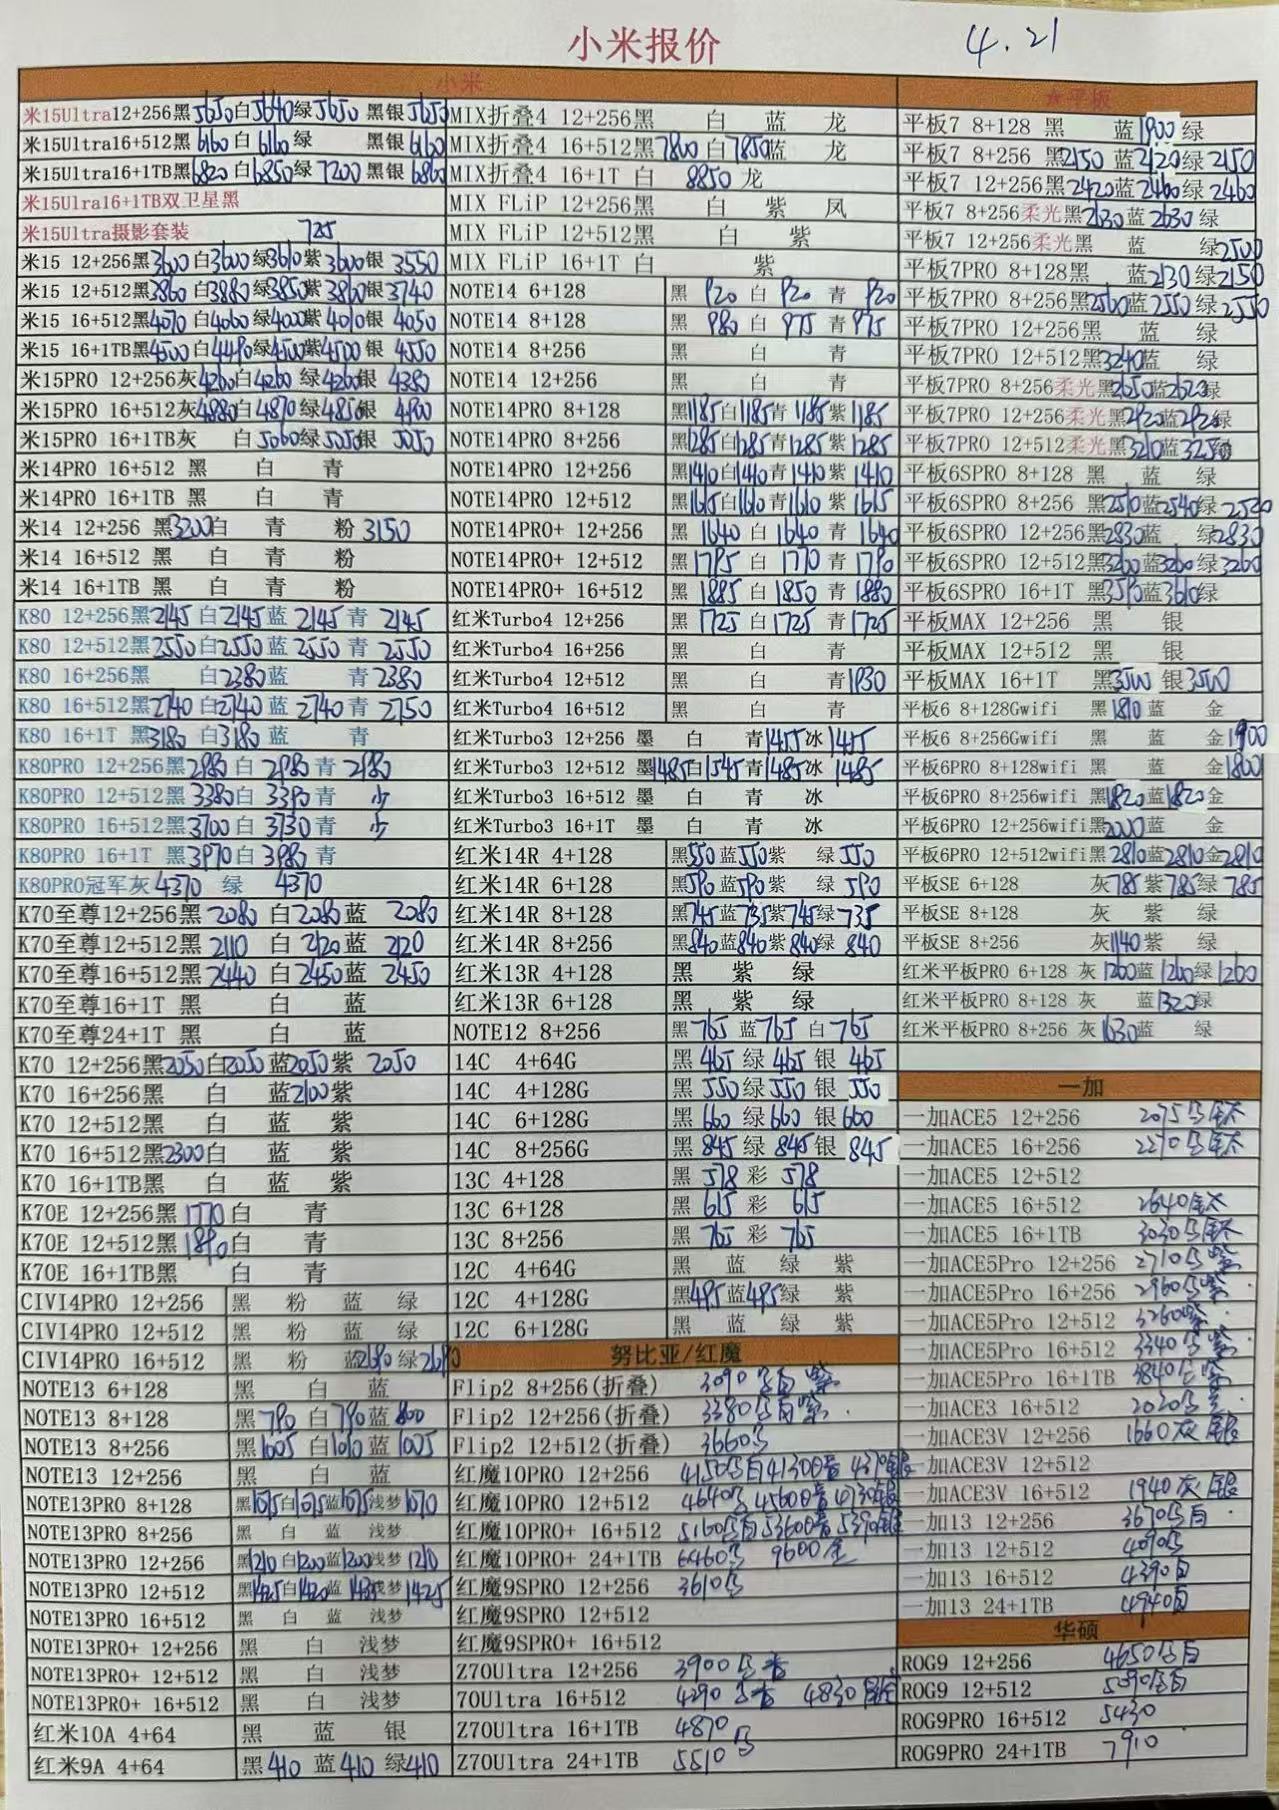 小米报价 4.21
小米
米15Ultra12+256黑5650白5640绿5650 黑银5650
米15Ultra16+512黑6160白6160绿 黑银6160
米15Ultra16+1TB黑6820白6850绿7200黑银6860
米15Ulra16+1TB双卫星黑
米15Ultra摄影套装 725
米15 12+256黑3600白3600绿3610紫3600银3550
米15 12+512黑3860白3880绿3850紫3860银3740
米15 16+512黑4070白4060绿4000紫4010银4050
米15 16+1TB黑4500白4490绿4500紫4500银4550
米15PRO 12+256灰4260白4260绿4260银4380
米15PRO 16+512灰4880白4870绿4850银4900
米15PRO 16+1TB灰 白5060绿5050银5050
米14PRO 16+512 黑 白 青
米14PRO 16+1TB 黑 白 青
米14 12+256 黑3200白 青 粉3150
米14 16+512 黑 白 青 粉
米14 16+1TB 黑 白 青 粉
K80 12+256黑2145白2145蓝2145青2145
K80 12+512黑2550白2550蓝2550青2550
K80 16+256黑 白2380蓝 青2380
K80 16+512黑2740白2740蓝2740青2750
K80 16+1T 黑3180白3180蓝 青
K80PRO 12+256黑2980白2980青2980
K80PRO 12+512黑3380白3390青 少
K80PRO 16+512黑3700白3730青 少
K80PRO 16+1T 黑3970白3980青
K80PRO冠军灰4370 绿 4370
K70至尊12+256黑2080白2080蓝2080
K70至尊12+512黑2110白2120蓝2120
K70至尊16+512黑2440白2450蓝2450
K70至尊16+1T 黑 白 蓝
K70至尊24+1T 黑 白 蓝
K70 12+256黑2050白2050蓝2050紫2050
K70 16+256黑 白 蓝2100紫
K70 12+512黑 白 蓝 紫
K70 16+512黑2300白 蓝 紫
K70 16+1TB黑 白 蓝 紫
K70E 12+256黑1770白 青
K70E 12+512黑1890白 青
K70E 16+1TB黑 白 青
CIVI4PRO 12+256 黑 粉 蓝 绿
CIVI4PRO 12+512 黑 粉 蓝 绿
CIVI4PRO 16+512 黑 粉 蓝2690绿2690
NOTE13 6+128 黑 白 蓝
NOTE13 8+128 黑790白790蓝800
NOTE13 8+256 黑1005白1010蓝1005
NOTE13 12+256 黑 白 蓝
NOTE13PRO 8+128 黑1075白1075蓝1075浅梦1070
NOTE13PRO 8+256 黑 白 蓝 浅梦
NOTE13PRO 12+256 黑1210白1200蓝1200浅梦1210
NOTE13PRO 12+512 黑1425白1420蓝1435浅梦1425
NOTE13PRO 16+512 黑 白 蓝 浅梦
NOTE13PRO+ 12+256 黑 白 浅梦
NOTE13PRO+ 12+512 黑 白 浅梦
NOTE13PRO+ 16+512 黑 白 浅梦
红米10A 4+64 黑 蓝 银
红米9A 4+64 黑410蓝410绿410
MIX折叠4 12+256黑 白 蓝 龙
MIX折叠4 16+512黑7800白7850蓝 龙
MIX折叠4 16+1T 白 8850龙
MIX FLiP 12+256黑 白 紫 凤
MIX FLiP 12+512黑 白 紫
MIX FLiP 16+1T 白 紫
NOTE14 6+128 黑920白920青920
NOTE14 8+128 黑980白975青975
NOTE14 8+256 黑 白 青
NOTE14 12+256 黑 白 青
NOTE14PRO 8+128 黑1185白1185青1185紫1185
NOTE14PRO 8+256 黑1285白1285青1285紫1285
NOTE14PRO 12+256 黑1410白1410青1410紫1410
NOTE14PRO 12+512 黑1615白1610青1610紫1615
NOTE14PRO+ 12+256 黑1640白1640青1640
NOTE14PRO+ 12+512 黑1795白1770青1790
NOTE14PRO+ 16+512 黑1885白1850青1880
红米Turbo4 12+256 黑1725白1725青1725
红米Turbo4 16+256 黑 白 青
红米Turbo4 12+512 黑 白 青1930
红米Turbo4 16+512 黑 白 青
红米Turbo3 12+256 墨 白 青1455冰1455
红米Turbo3 12+512 墨1485白1545青1485冰1485
红米Turbo3 16+512 墨 白 青 冰
红米Turbo3 16+1T 墨 白 青 冰
红米14R 4+128 黑550蓝550紫 绿550
红米14R 6+128 黑590蓝590紫 绿590
红米14R 8+128 黑745蓝735紫745绿735
红米14R 8+256 黑840蓝840紫840绿840
红米13R 4+128 黑 紫 绿
红米13R 6+128 黑 紫 绿
NOTE12 8+256 黑765蓝765白765
14C 4+64G 黑465绿465银465
14C 4+128G 黑550绿550银550
14C 6+128G 黑660绿600银600
14C 8+256G 黑845绿845银845
13C 4+128 黑578彩578
13C 6+128 黑615彩615
13C 8+256 黑765彩765
12C 4+64G 黑 蓝 绿 紫
12C 4+128G 黑495蓝495绿 紫
12C 6+128G 黑 蓝 绿 紫
努比亚/红魔
Flip2 8+256(折叠) 3090
Flip2 12+256(折叠) 3380
Flip2 12+512(折叠) 3660
红魔10PRO 12+256 4150 4130 4370
红魔10PRO 12+512 4640 4560 4730
红魔10PRO+ 16+512 5160 5360 5390
红魔10PRO+ 24+1TB 6460 9600金
红魔9SPRO 12+256 3610
红魔9SPRO 12+512
红魔9SPRO+ 16+512
Z70Ultra 12+256 3900
70Ultra 16+512 4290 4830
Z70Ultra 16+1TB 4870
Z70Ultra 24+1TB 5510
☆平板
平板7 8+128 黑 蓝1900绿
平板7 8+256 黑2150蓝2120绿2150
平板7 12+256黑2420蓝2460绿2460
平板7 8+256柔光黑2630蓝2630绿
平板7 12+256柔光黑 蓝 绿2500
平板7PRO 8+128黑 蓝2130绿2150
平板7PRO 8+256黑2560蓝2550绿2550
平板7PRO 12+256黑 蓝 绿
平板7PRO 12+512黑3240蓝 绿
平板7PRO 8+256柔光黑2650蓝2620绿
平板7PRO 12+256柔光黑2920蓝2920绿
平板7PRO 12+512柔光黑3210蓝3250
平板6SPRO 8+128 黑 蓝 绿
平板6SPRO 8+256 黑2510蓝2540绿2520
平板6SPRO 12+256黑2830蓝 绿2830
平板6SPRO 12+512黑3260蓝3260绿3260
平板6SPRO 16+1T 黑3590蓝3610绿
平板MAX 12+256 黑 银
平板MAX 12+512 黑 银
平板MAX 16+1T 黑3500银3500
平板6 8+128Gwifi 黑1810蓝 金
平板6 8+256Gwifi 黑 蓝 金1900
平板6PRO 8+128wifi 黑 蓝 金1800
平板6PRO 8+256wifi 黑1820蓝1820金
平板6PRO 12+256wifi黑2000蓝 金
平板6PRO 12+512wifi黑2810蓝2810金2810
平板SE 6+128 灰785紫785绿785
平板SE 8+128 灰 紫 绿
平板SE 8+256 灰1140紫 绿
红米平板PRO 6+128 灰1260蓝1260绿1260
红米平板PRO 8+128 灰 蓝1320绿
红米平板PRO 8+256 灰1630蓝 绿
一加
一加ACE5 12+256 2075
一加ACE5 16+256 2270
一加ACE5 12+512
一加ACE5 16+512 2640
一加ACE5 16+1TB 3030
一加ACE5Pro 12+256 2710
一加ACE5Pro 16+256 2960
一加ACE5Pro 12+512 3260
一加ACE5Pro 16+512 3340
一加ACE5Pro 16+1TB 3840
一加ACE3 16+512 2020
一加ACE3V 12+256 1660灰 银
一加ACE3V 12+512
一加ACE3V 16+512 1940灰 银
一加13 12+256 3670
一加13 12+512 4090
一加13 16+512 4390白
一加13 24+1TB 4940白
华硕
ROG9 12+256 4650
ROG9 12+512 5090
ROG9PRO 16+512 5430
ROG9PRO 24+1TB 7910